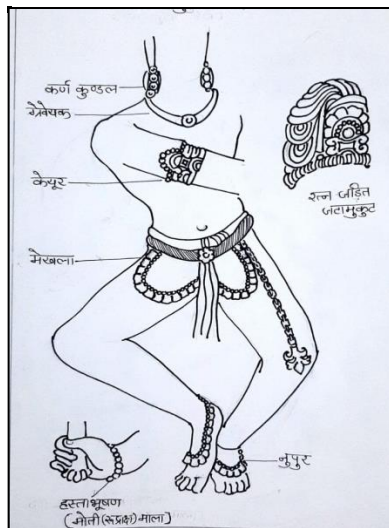 कर्ण कुण्डल
ग्रेवेयक
केयूर
रत्न जड़ित
जटामुकुट
मेखला
नुपुर
हस्ताभूषण
(मोती (रुद्राक्ष) माला)